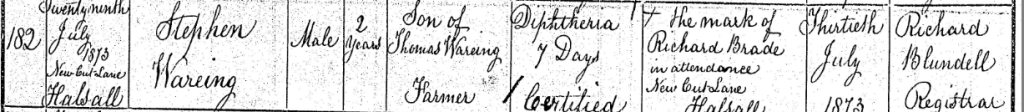 182
Twenty ninth
July
1873
New Cut Lane
Halsall
Stephen
Wareing
Male
2
Years
Son of
Thomas Wareing
Farmer
Diphtheria
7 Days
Certified
X The mark of
Richard Brade
in attendance
New Cut Lane
Halsall
Thirtieth
July
1873
Richard
Blundell
Registrar